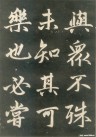 與眾不殊
未知其可
樂也必當